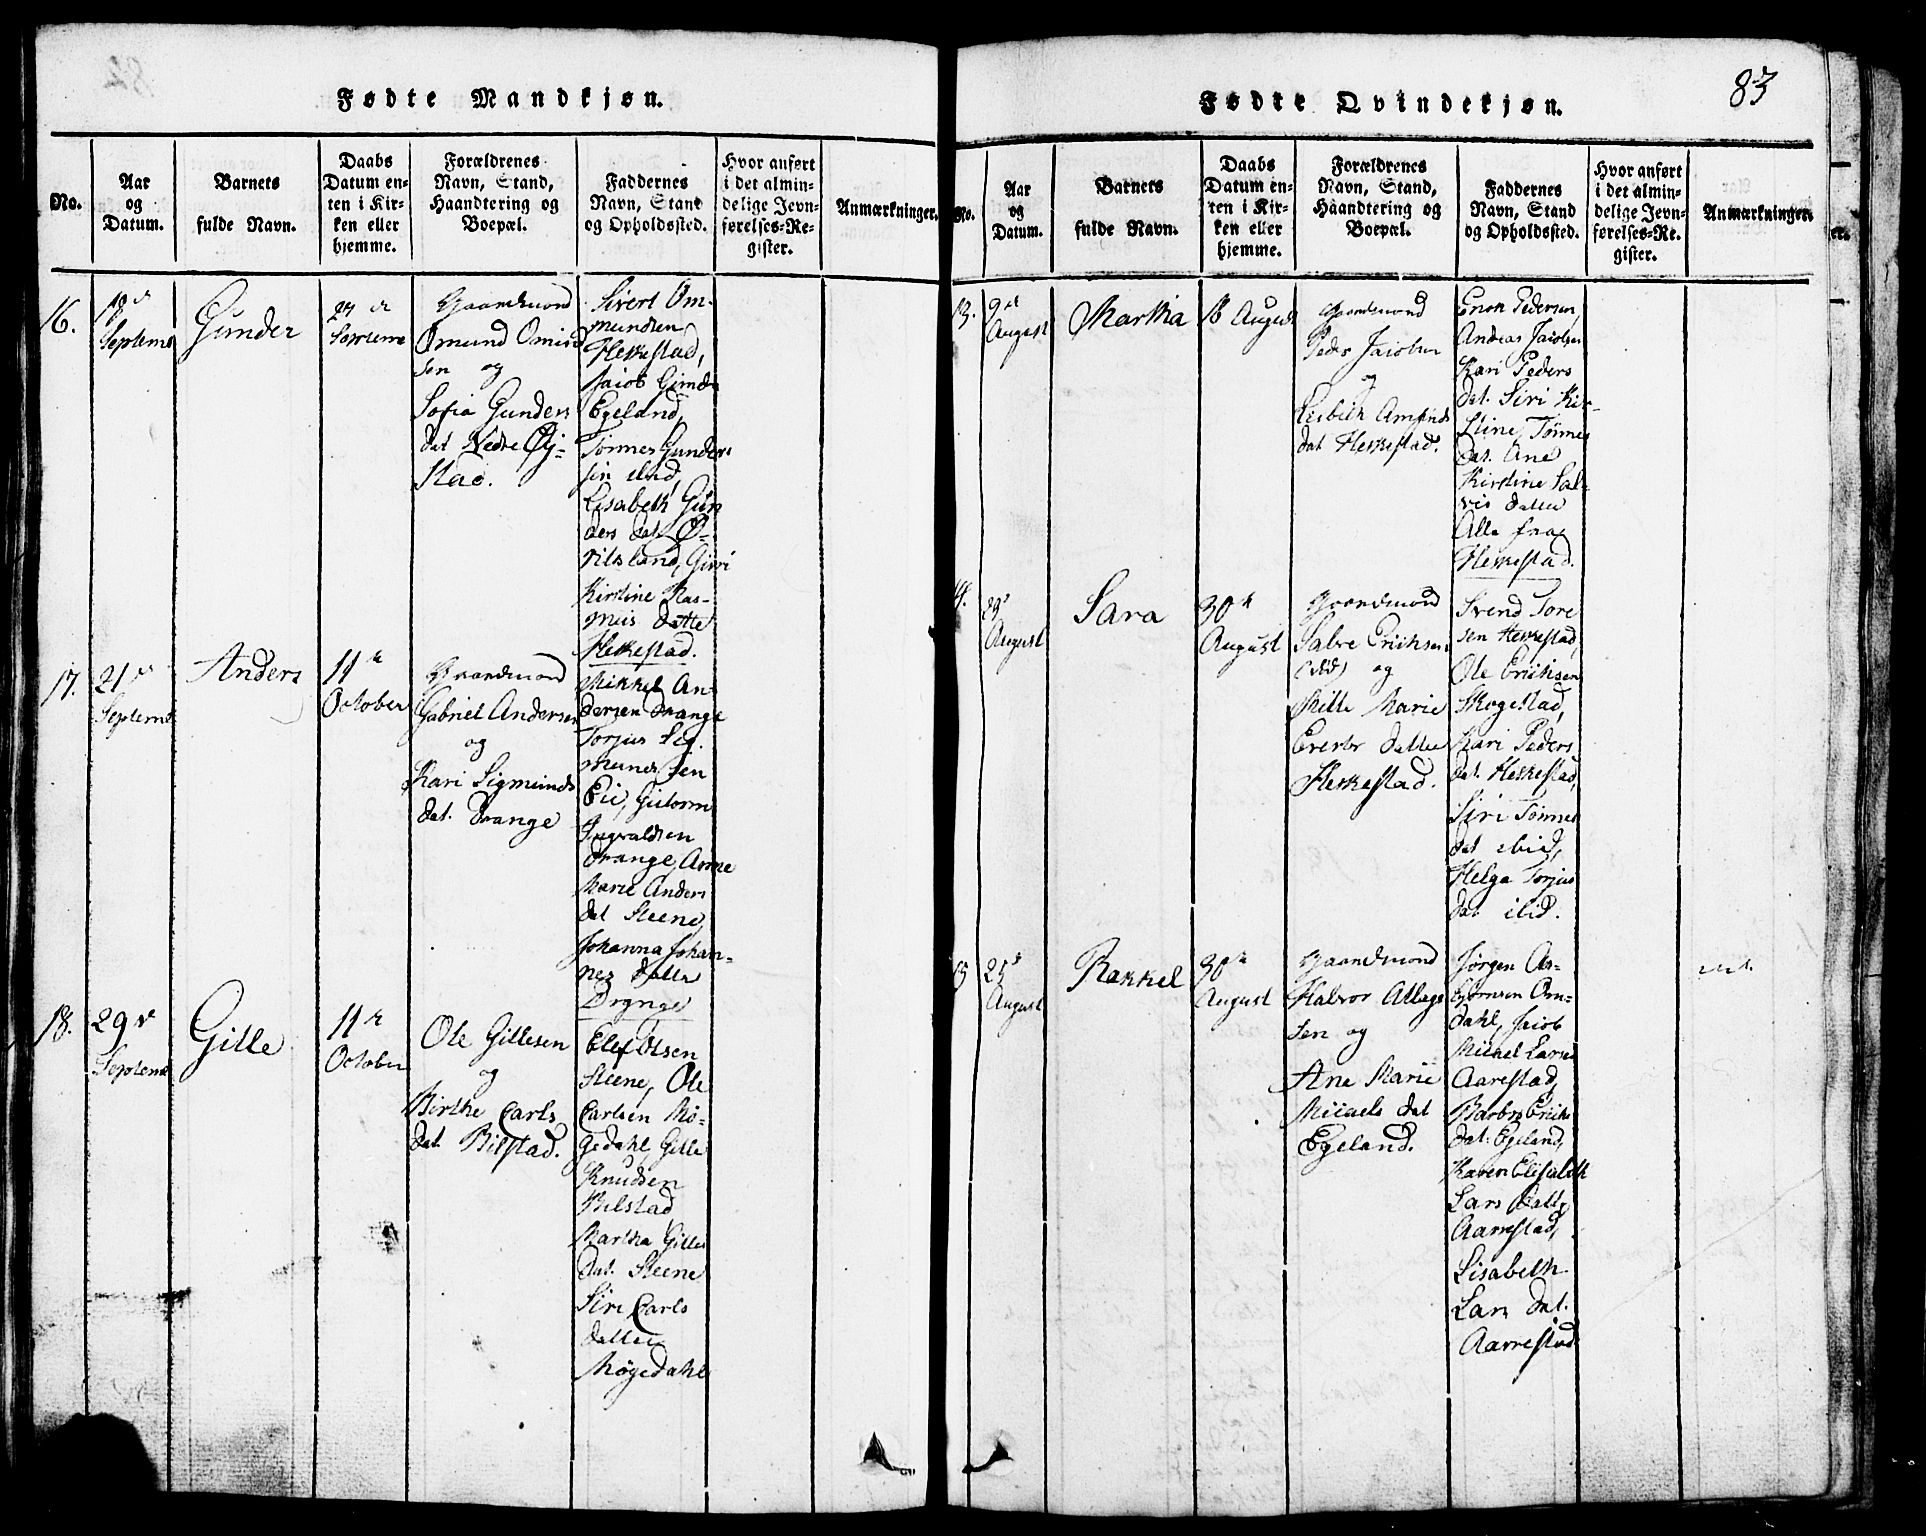 83
Fødte Mandkjøn.
No.
Aar
og
Datum.
Barnets
fulde Navn.
Daabs
Datum en-
ten i Kir-
ken eller
hjemme.
Forældrenes
Navn, Stand,
Haandtering og
Boepæl.
Faddernes
Navn, Stand
og Opholdssted.
Hvor anført
i det almin-
delige Jevn-
førelses-Re-
gister.
Anmærkninger.
16.
Septemb
Gunder
27 de
Gaardmand
Omund Omund
sen og
Sofia Gunders
dat Nedre Øj-
stad.
Sivert Om-
mundsen
Hekkestad,
Jacob
Egeland,
Tønnes Gunders
sen ibid,
Lisabeth Gun
ders dat. Ø-
Kirstine Ras-
mus datte
Hekkestad.
17.
21 de
Septemb
Anders
11 te
October
Gaardmand
Gabriel Andersen
og
Kari Sigmunds
dat. Drange
Mikkel An-
dersen Drange
Torjus Sig-
mundsen
Eie, Gutorm
Ingvaldsen
Drange, Anne
Marie Anders
dat Steene,
Johanna Johan-
nes datte
18.
29 de
Septemb
Gille
11 te
October
Ole Gillesen
og
Birthe Carls
dat. Bilstad.
Elef Olsen
Steene, Ole
Carlsen Mø-
gedahl, Gille
Knudsen
Bilstad
Martha Gilles
dat. Steene
Siri Carls
datter
Møgedahl
Fødte Qvindekjøn.
No.
Aar
og
Datum.
Barnets
fulde Navn.
Daabs
Datum en-
ten i Kir-
ken eller
hjemme.
Forældrenes
Navn, Stand,
Haandtering og
Boepæl.
Faddernes
Navn, Stand
og Opholdssted.
Hvor anført
i det almin-
delige Jevn-
førelses-Re-
gister.
Anmærkninger.
13.
9de
August
Martha
16 August
Gaardmand
Peder Jacobsen
og
Lisbeth
dat Hekkestad.
Enok Pedersen,
Andreas Jacobsen
Kari Peders
dat. Siri Kir-
stine Tønnes
dat. Ane
Kirstine Sal-
ves datter
Alle fra
Hekkestad.
14.
29
August
Sara
30 te
August
Gaardmand
Salve Erichsen
(ibid) og
Mille Marie
datter
Hekkestad.
Svend Tore
sen Hekkestad,
Ole Erichsen
Skogestad,
Kari Peders
dat. Hekkestad,
Siri Tønnes
dat ibid,
Helga Torjus
dat ibid.
15
25
August
Rakkel
30 te
August
Gaardmand
Halvor
sen og
Ane Marie
Michels dat
Egeland.
Jørgen As-
bjørnsen Om-
dahl, Jacob
Michel Larsen
Aarestad,
Barbro Erichs
dat. Egeland,
Karen Elisabeth
Lars datte
Aarrestad,
Lisabeth
Lars dat.
Aarrestad